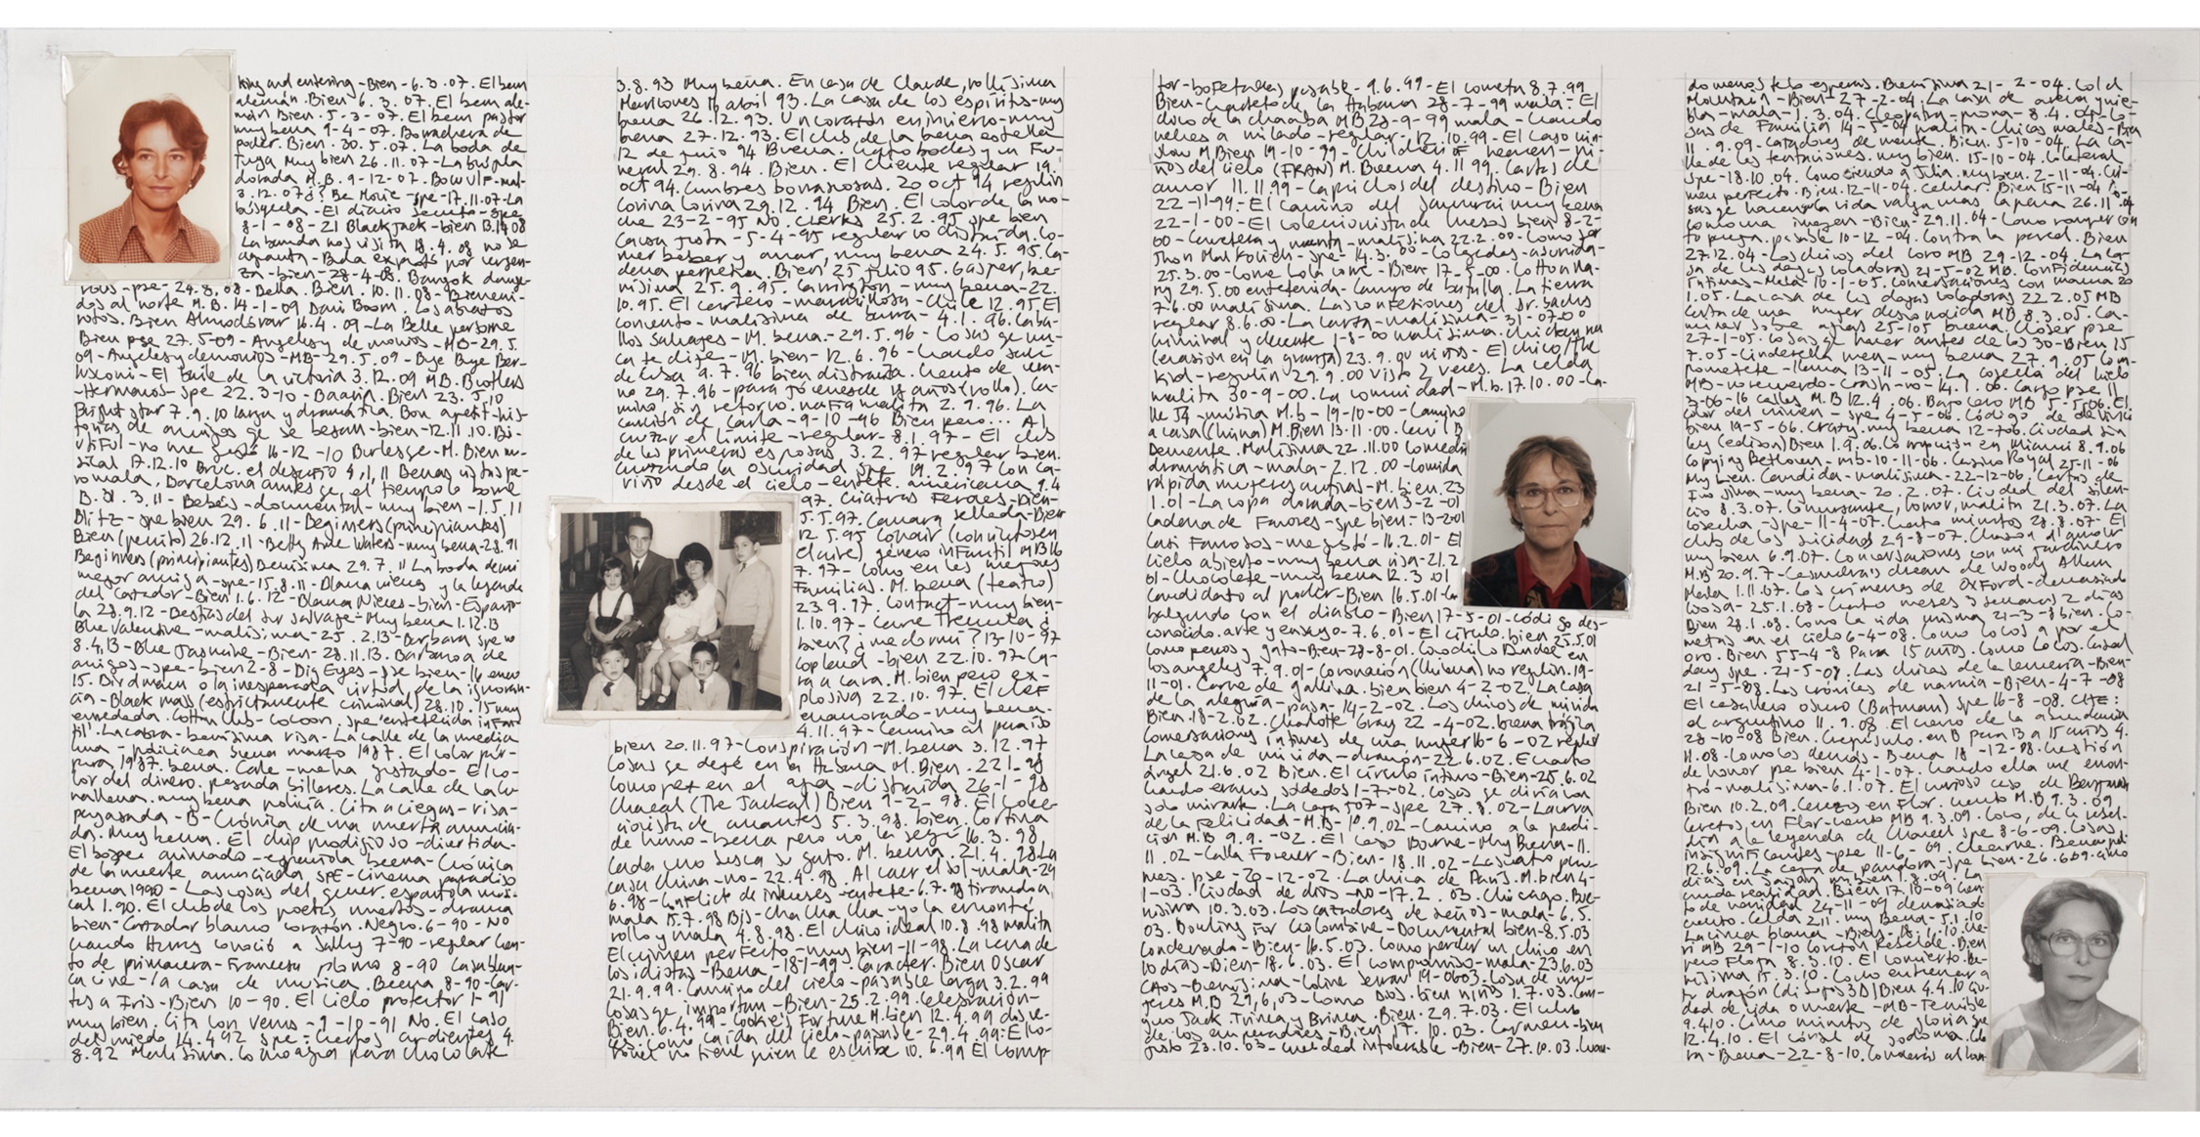 King and entering - Bien - 6.3.07. El buen
alemán. Bien - 6.3.07. El buen ale-
mán Bien. 5-3-07. El buen pastor
muy buena 9-4-07. Borrachera de
poder. Bien. 30.5.07. La boda de
Tuya Muy bien 26.11.07 - La brújula
dorada M.B. 9-12-07. Bowulf - mal-
búsqueda - El diario secreto - spe
8-1-08 - 21 Blackjack - bien
La banda nos visita 18.4.08 no se
za - bien - 28-4-08. Bangok dange-
rous - pse - 24.8.08 - Bella. Bien. 10.11.08 - Bienveni-
dos al norte M.B. 14-1-09 Dani Boom. Los abrazos
rotos. Bien Almodóvar 16.4.09 - La Belle persone
Bien pse 27.5-09 - Angeles y demonios - MB - 29.5.
09 - Angeles y demonios - MB - 29.5.09 - Bye Bye Ber-
lusconi - El baile de la victoria 3.12.09 MB. Brothers
- Hermanos - spe 22.3-10 - Baaria. Bien 23.5.10
Bright star 7.9.10 larga y dramática. Bon apetit - his-
torias de amigos qe se besan - bien - 12.11.10. Bi-
utiful - no me gustó 16-12-10 Burlesge - M. Bien mu-
sical 17.12.10 Bruc. el desafío 4.1.11 Buenas vistas pe-
ro mala. Barcelona antes qe el tiempo lo borre
B. 31.3.11 - Bebés - documental - muy bien - 1.5.11
Blitz - spe bien 29.6.11 - Beginners (principiantes)
Bien (perrito) 26.12.11 - Betty Anne Waters - muy buena - 28.91
Beginners (principiantes) Buenísima 29.7.11 La boda de mi
mejor amiga - spe - 15.8.11 - Blancanieves y la leyenda
del Cazador - Bien 1.6.12 - Blanca Nieves - bien - España
la 28.9.12 - Bestias del sur salvaje - Muy buena 1.12.13
Blue Valentine - malísima - 25.2.13 - Barbara spe no
8.4.13 - Blue Jasmine - Bien - 28.11.13. Barbacoa de
amigos - spe - bien 2-8 - Big Eyes - pse bien - 16 enero
15. Birdman o la inesperada virtud de la ignoran-
cia - Black mass (estrictamente criminal) 28.10.15 muy
enredada. Cotton club - Cocoon. spe entretenida infan
til. La cabra - buenísima risa - La calle de la media
luna - judiciaca buena marzo 1987. El color púr-
pura 1987. buena. Calle - me ha gustado - El co-
lor del dinero. pesada billares. La calle de la ba
llena. muy buena policía. Cita a ciegas - risa -
payasada - B - Crónica de una muerte anuncia-
da. Muy buena. El chip prodigioso - divertida.
El bosque animado - española buena - Crónica
de la muerte anunciada SPE - Cinema paradiso
buena 1990 - Las cosas del qerer. española musi-
cal 1.90. El club de los poetas muertos - drama
bien - Cazador blanco corazón. Negro. 6-90 - NO
Cuando Harry conoció a Sally 7-90 - regular Cuen-
to de primavera - Francesa plomo 8-90 Casablan-
ca cine - la casa de musica. Buena 8-90 - Car-
tas a Iris - Bien 10-90. El Cielo protector 1-91
muy bien. Cita con Venus - 9-10-91 No. El Cabo
del miedo 14.4.92 spe - Cuerpos ardientes 4.
8.92 Malísima. Como agua para chocolate
3.8.93 Muy buena. En casa de Claude, rollísima
Marillones 16 abril 93. La casa de los espíritus - muy
buena 26.12.93. Un corazón en invierno - muy
buena 27.12.93. El club de la buena estrella
12 de junio 94 Buena. Cuatro bodas y un Fu-
neral 29.8.94. Bien. El cliente regular 19.
oct 94. Cumbres borrascosas. 20 oct 94 regulín
Corina Corina 29.12.94 Bien. El color de la no-
che 23-2-95 No. Clerks 25.2.95 spe bien
Causa justa - 5-4-95 regular lo distraída. Co-
mer beber y amar, muy buena 24.5.95. Ca-
dena perpetua. Bien 25 julio 95. Gasper, bue-
nísima 25.9.95. Carrington - muy buena - 22.
10.95. El cartero - maravillosa - Chile 12.95 El
convento - malísima de burra - 4.1.96. Caba-
llos Salvajes - M. buena - 29.5.96 - Cosas qe nun-
ca te dije - M. bien - 12.6.96 - Cuando salí
de Cuba 9.7.96 bien distraída. Cuento de vera-
no 29.7.96 - para jóvenes de 18 años (rollo). Ca-
mino sin retorno. mafia malita 2.9.96. La
canción de Carla - 9-10-96 Bien pero... Al
cruzar el límite - regular - 8.1.97 - El club
de las primeras esposas 3.2.97 regular bien.
Cruzando la oscuridad spe 19.2.97 Con ca-
riño desde el cielo - entete. americana 9.4
97. Cuatras Feroces - Bien -
5.5.97. Camara sellada - Bien
12.5.97 Conair (convictos en
el aire) género infantil MB 16
7.97 - Como en las mejores
Familias. M. buena (teatro)
23.9.97. Contact - muy bien -
1.10.97 - Carne Tremula ¿
bien? ¿me dormí? 13-10-97
Copland - bien 22.10.97 - Ca-
ra a cara. M. bien pero ex-
plosiva 22.10.97. El chef
enamorado - muy buena -
4.11.97 - Camino al paraíso
bien 20.11.97 - Conspiración - M. buena 3.12.97
Cosas qe dejé en la Habana M. Bien. 22.1-98
Como pez en el agua - distraída 26-1-98
Chacal (The Jackal) Bien 9-2-98. El cole-
cionista de amantes 5.3.98. bien. Cortina
de humo - buena pero no la seguí 16.3.98
Cada uno busca su gato. M. buena. 21.4.98 La
casa China - no - 22.4.98. Al caer el sol - mala - 29
6.98 - Conflict de intereses - entete - 6.7.98 tirando a
mala 15.7.98 Bis - cha cha cha - yo la encontré
rollo y mala 4.8.98. El chico ideal 10.8.98 malita
El crimen perfecto - muy bien - 11-98. La cena de
los idiotas - Buena - 18-1-99 - Caracter. Bien Oscar
21.9.99 - Camino del cielo - pasable larga 3.2.99
Cosas qe importan - Bien - 25.2.99. Celebración -
Bien. 6.4.99 - Cookie's Fortune M. bien 12.4.99 dos ve-
ces. Como caída del cielo - pasable - 29.4.99 - El co-
ronel no tiene quien le escriba 10.6.99 El comp
tor - bofetadas pasable - 9.6.99 - El cometa 8.7.99
Bien - Cuarteto de la Habana 28-7-99 mala - El
chico de la chaaba MB 23-9-99 mala - Cuando
vuelvas a mi lado - regular - 12.10.99 - El Caso Win-
slow M. Bien 19-10-99 - Children of heaven - Ni-
ños del cielo (IRAN) M. Buena 4.11.99. Cartas de
amor 11.11.99 - Caprichos del destino - Bien
22-11-99 - El camino del Samurai muy buena
22-1-00 - El colecionista de huesos bien 8-2-
00 - Carretera y manta - malísima 22.2.00 - Como ser
Jhon Malkolich - spe - 14.3.00 - Colgadas - aburrida -
25.3.00 - Corre Lola corre - Bien - 17-5-00 - Cotton Ma-
ry 29.5.00 entetenida - Campo de batalla. La tierra
7-6.00 malísima. Las confesiones del Dr. Sachs
regular 8.6.00 - La carta - malísima - 31-07-00
Criminal y decente 1-8-00 malísima. Chicken run
(evasión en la granja) 23.9.00 niños - El chico/The
kid - regulín 29.9.00 visto 2 veces. La celda
malita 30-9-00. La comunidad - M.b. 17.10.00 - Ca-
lle 54 - música M.b - 19-10-00 - Camino
a casa (China) M. Bien 13-11-00. Cecil B
Demente. Malísima 22.11.00 Comedia
dramática - mala - 2.12.00 - Comida
rápida mujeres activas - M. bien. 23
1.01 - La copa dorada - bien 3-2-01
Cadena de Favores - spe bien - 13-2-01
Casi Famosos - me gustó - 16.2.01 - El
cielo abierto - muy buena risa - 21.2
01 - Chocolate - muy buena 12.3.01
Candidato al poder - Bien 16.5.01 - Ca
balgando con el diablo - Bien 17-5-01 - Código des-
conocido. arte y ensayo - 7.6.01 - El círculo. bien 25.5.01
Como perros y gatos - Bien - 28-8-01. Cocodrilo Dundee en
los angeles 7.9.01 - Coronación (Chilena) no regulín. 19-
11-01. Carne de gallina. bien bien 4-2-02. La casa
de la alegría - pasa - 14-2-02. Los chicos de mi vida
Bien. 18-2.02. Charlotte Gray 22-4-02. buena trágica
Conversaciones íntimas de una mujer 16-6-02 regular
La casa de mi vida - dramón - 22.6.02. El cuarto
ángel 21.6.02 Bien. El círculo íntimo - Bien - 25.6.02
Cuando eramos soldados 1-7-02. Cosas qe diría con
solo mirarla. La casa 507 - spe 27.8.02 - Laurra
de la Felicidad - M.B - 10.9.02 - Camino a la perdi-
ción M.B 9.9.-02. El caso Bourne - Muy Buena - 11.
11.02 - Calla Forever - Bien - 18.11.02 - Las cuatro plu-
mas. pse - 20-12-02. La chica de Paris. M. bien 4-
1-03. Ciudad de dios - no - 17.2.03. Chicago. Bue-
nísima 10.3.03. Los cazadores de sueños - mala - 6.5.
03. Bowling For Colombine - Documental bien - 8.5.03
Condenado - Bien - 16.5.03. Como perder un chico en
10 días - Bien - 18.6.03. El compromiso - mala - 23.6.03
CAOS - Buenísima - Coline serrar 19-0603. Cosa de mu-
jeres M.B 29.6.03 - Como Dios. bien niños 1.7.03. Can-
guro Jack. Trinca y Brinca. Bien. 29.7.03. El club
de los emperadores - Bien 17.10.03. Carmen - bien
justo 23.10.03 - Crueldad intolerable - Bien - 27.10.03. Cuan-
do menos te lo esperas. Buenísima 21-2-04. Cold
Mountain - Bien - 27-2-04. La casa de arena y nie-
bla - mala - 1.3.04. Cleopatra - mona - 8.4.04 - Co-
sas de Familia 14-5-04 malita - Chicas malas - Bien
11.9.09 - Cazadores de mente. Bien. 5-10-04. La ca-
lle de las tentaciones. muy bien. 15-10-04. Colateral
spe - 18.10.04. Conociendo a Julia. muy bien. 2-11-04. Cri-
men perfecto. Bien. 12-11-04. Celular. Bien 15-11-04
sas qe hacen qe la vida valga mas la pena 26.11.04
Como una imagen - Bien - 29.11.04 - Como romper con
tu pareja. pasable 10-12-04. Contra la pared. Bien
27.12.04 - Los chicos del coro MB 29-12-04. La ca-
sa de las dagas voladoras 21-5-02 MB. Confidencias
íntimas - Mala 10-1-05. Conversaciones con mama 20
1.05. La casa de las dagas voladoras 22.2.05 MB
Carta de una mujer desconocida MB. 8.3.05. Ca-
minar sobre aguas 25-105 buena. Closer pse
27-1-05. Cosas qe hacer antes de los 30 - Bien 15
7.05 - Cinderella man - muy buena 27.9.05 Com-
prometete - Llama 13-11-05. La cosecha del cielo
MB - no recuerdo - Crash - no - 14.1.06. Cargo pse 11
3-06-16 calles M.B 12.4.06. Bajo cero MB 5-5-06. El
color del crimen - spe - 4-5-06. Código de davinci
bien 19-5-06. Crazy. muy buena 12-706. Ciudad sin
ley (edison) Bien 1.9.06. Corrupción en Miami 8.9.06
Copying Bethoven - mb - 10-11-06. Casino Royal 25-11-06
Muy bien. Candida - malísima - 22-12-06. Cartas de
Iwo jima - muy buena - 20.2.07. Ciudad del silen-
cio 8.3.07. Cinturante, amor, malita 21.3.07. La
cosecha - spe - 11-4-07. Cuatro minutos 28.8.07 - El
club de los suicidas 29-8-07. Chanson d'amour
muy bien 6.9.07. Conversaciones con mi jardinero
M.B 20.9.7 - Casandra's dream de Woody Allen
Mala 1.11.07. Los crímenes de Oxford - demasiado
cosa - 25.1.08 - Cuatro meses 3 semanas 2 días
Bien 28.1.08. Como la vida misma 21-3-8 bien. Co-
metas en el cielo 6-4-08. Como locos a por el
oro. Bien 5-4-8 Para 15 años. Como Locos. Casual
day spe. 21-5-08. Las chicas de la lencería - Bien -
21-5-08. Las crónicas de narnia - Bien - 4-7-08
El caballero oscuro (Batman) spe 16-8-08. CHE:
el argentino 11.9.08. El canto de la abundancia
28-10-08 Bien. Crepúsculo. en B para 13 a 15 años 4.
11.08. Como los demás - Buena 18-12-08. Cuestión
de honor pse bien 4-1-07. Cuando ella me encon-
tró - malísima - 6.1.07. El curioso caso de Benjamin
Bien 10.2.09. Cerezos en Flor. cuento M.B 9.3.09
Cerezos en Flor - cuento MB 9.3.09. Coco, de la rebel-
día a la leyenda de Chanel spe 8-6-09. Cosas
insignificantes - pse 11-6-09. Cheurne. Buena
12.6.09. La caja de pandora - spe bien - 26.609.
La
cruda realidad. Bien 17-10-09 Cuen-
to de navidad 24-11-09 demasiado
cuento. Celda 211. muy Buena - 5.1.10
La cinta blanca - Bien - 18.1.10.
M.B 29-1-10 Corazón Rebelde. Bien
pero Floja 8.3.10. El concierto. Bue-
nísima 15.3.10. Como entrenar a
tu dragón (dibujos 3D) Bien 4.4.10 Ciu-
dad de vida o muerte - MB - Terrible
9.4.10. Cinco minutos de gloria spe
12.4.10. El cónsul de sodoma. Ce
ra - Buena - 22-8-10. Conocerás al hom-